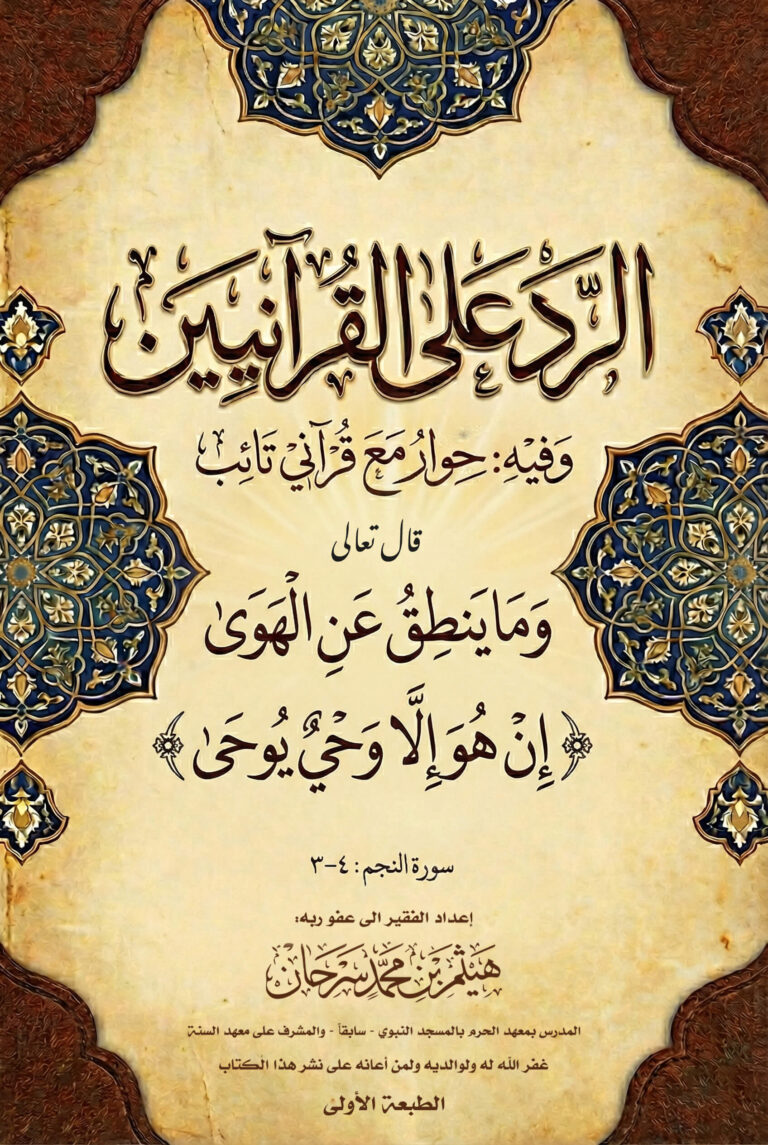 الرَّدَ عَلى القُرآنِيِينَ
وَفيْهِ: حِوارُ مَعَ قُرآنيْ تَائِب
قال تعالى
وَمَا يَنطِقُ عَنِ الْهَوَىٰ
﴿ إِنْ هُوَ إِلَّا وَحْيٌ يُوحَىٰ ﴾
سورة النجم: ٤-٣
إعداد الفقير الى عفو ربه:
هَيثم بن محمَّد سَرحَان
المدرس بمعهد الحرم بالمسجد النبوي - سابقاً - والمشرف على معهد السنة
غفر الله له ولوالديه ولمن أعانه على نشر هذا الكتاب
الطبعة الأولى